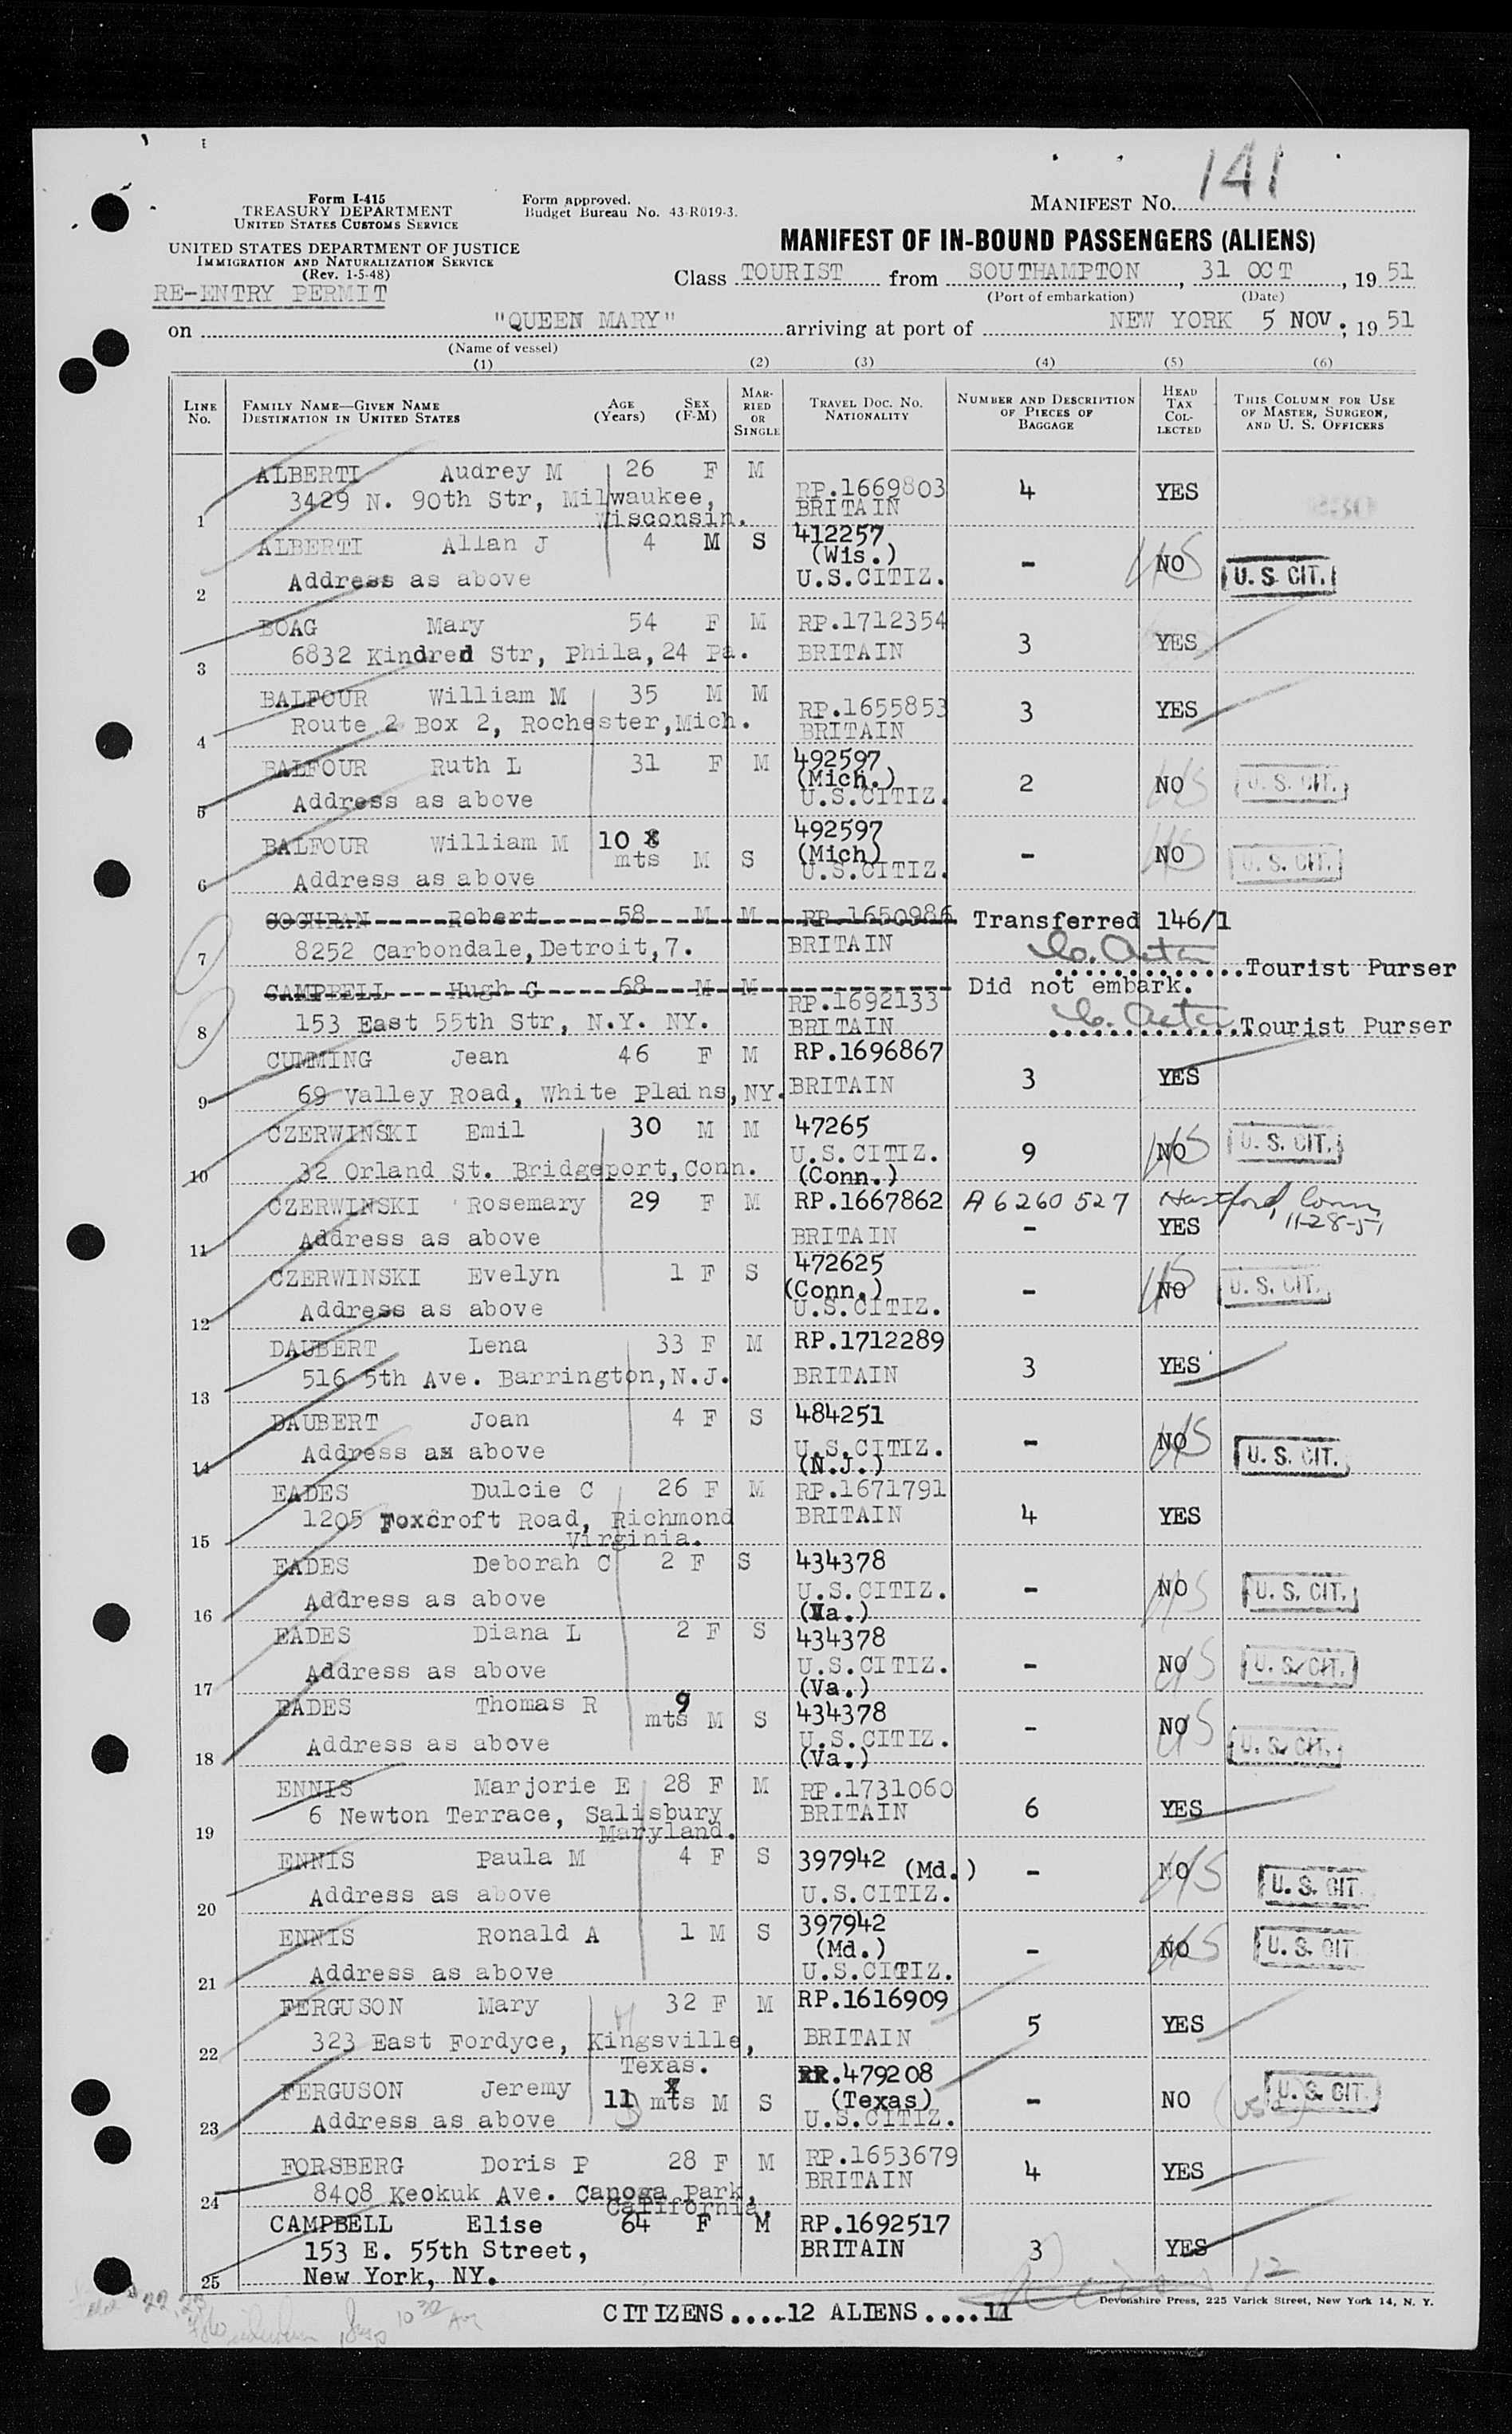 141
Form I-415
TREASURY DEPARTMENT
UNITED STATES CUSTOMS SERVICE
Form approved.
Budget Bureau No. 43-R019-3.
MANIFEST NO.
UNITED STATES DEPARTMENT OF JUSTICE
IMMIGRATION AND NATURALIZATION SERVICE
(Rev. 1-5-48)
RE-ENTRY PERMIT
MANIFEST OF IN-BOUND PASSENGERS (ALIENS)
Class TOURIST from SOUTHAMPTON, 31 OCT, 19 51
(Port of embarkation) (Date)
on "QUEEN MARY" arriving at port of NEW YORK 5 NOV, 19 51
(Name of vessel)
(1) (2) (3) (4) (5) (6)
LINE NO. FAMILY NAME—GIVEN NAME DESTINATION IN UNITED STATES AGE (Years) SEX (F-M) MARRIED OR SINGLE TRAVEL DOC. NO. NATIONALITY NUMBER AND DESCRIPTION OF PIECES OF BAGGAGE HEAD TAX COLLECTED THIS COLUMN FOR USE OF MASTER, SURGEON, AND U. S. OFFICERS
ALBERTI Audrey M 26 F M RP.1669803 4 YES
3429 N. 90th Str, Milwaukee, BRITAIN
1 Wisconsin.
ALBERTI Allan J 4 M S 412257
(Wis.) - NO US U. S. CIT.
2 Address as above U.S.CITIZ.
BOAG Mary 54 F M RP.1712354
3 6832 Kindred Str, Phila,24 Pa. BRITAIN 3 YES
BALFOUR William M 35 M M RP.1655853 3 YES
4 Route 2 Box 2, Rochester,Mich. BRITAIN
BALFOUR Ruth L 31 F M 492597
(Mich.) 2 NO US U. S. CIT.
5 Address as above U.S.CITIZ.
BALFOUR William M 10 mts M S 492597
(Mich) - NO US U. S. CIT.
6 Address as above U.S.CITIZ.
COCHRAN Robert 58 M M RP.1650986 Transferred 146/1
7 8252 Carbondale,Detroit,7. BRITAIN
Tourist Purser
CAMPBELL Hugh G 68 M M RP.1692133 Did not embark.
8 153 East 55th Str, N.Y. NY. BRITAIN Tourist Purser
CUMMING Jean 46 F M RP.1696867
9 69 Valley Road, White Plains,NY. BRITAIN 3 YES
CZERWINSKI Emil 30 M M 47265
U.S.CITIZ. 9 NO US U. S. CIT.
10 32 Orland St. Bridgeport,Conn. (Conn.)
CZERWINSKI Rosemary 29 F M RP.1667862 A 6260 527 Hartford, Conn,
11-28-51
11 Address as above BRITAIN - YES
CZERWINSKI Evelyn 1 F S 472625
(Conn.) - NO US U. S. CIT.
12 Address as above U.S.CITIZ.
DAUBERT Lena 33 F M RP.1712289
13 516 5th Ave. Barrington,N.J. BRITAIN 3 YES
DAUBERT Joan 4 F S 484251
14 Address as above U.S.CITIZ. - NO US U. S. CIT.
(N.J.)
EADES Dulcie C 26 F M RP.1671791
1205 Foxcroft Road, Richmond BRITAIN 4 YES
15 Virginia.
EADES Deborah C 2 F S 434378
16 Address as above U.S.CITIZ. - NO US U. S. CIT.
(Va.)
EADES Diana L 2 F S 434378
17 Address as above U.S.CITIZ. - NO US U. S. CIT.
(Va.)
EADES Thomas R 9 mts M S 434378
18 Address as above U.S.CITIZ. - NO US U. S. CIT.
(Va.)
ENNIS Marjorie E 28 F M RP.1731060
6 Newton Terrace, Salisbury BRITAIN 6 YES
19 Maryland.
ENNIS Paula M 4 F S 397942 (Md.) - NO US U. S. CIT.
20 Address as above U.S.CITIZ.
ENNIS Ronald A 1 M S 397942
(Md.) - NO US U. S. CIT.
21 Address as above U.S.CITIZ.
FERGUSON Mary 32 F M RP.1616909
22 323 East Fordyce, Kingsville, BRITAIN 5 YES
Texas.
FERGUSON Jeremy 11 mts M S .479208
(Texas) - NO U. S. CIT.
23 Address as above U.S.CITIZ.
FORSBERG Doris P 28 F M RP.1653679
8408 Keokuk Ave. Canoga Park, BRITAIN 4 YES
24 California.
CAMPBELL Elise 64 F M RP.1692517
153 E. 55th Street, BRITAIN 3 YES
25 New York, NY.
12
CITIZENS....12 ALIENS....11
Devonshire Press, 225 Varick Street, New York 14, N. Y.